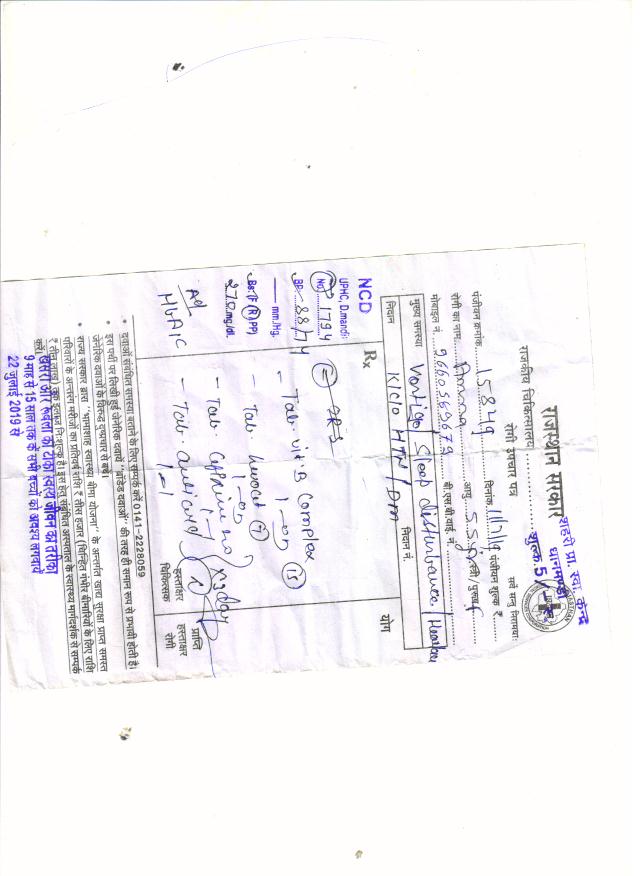 राजस्थान सरकार
शहरी प्रा. स्वा. केन्द्र
धानमण्डी
राजकीय चिकित्सालय
शुल्क. 5/-
रोगी उपचार पत्र
सर्वे सन्तु निरामया
पंजीयन क्रमांक 15849 दिनांक पंजीयन शुल्क ₹
रोगी का नाम Amna आयु 55 y स्त्री/पुरूष f
मोबाइल नं. बी.एस.बी.वाई. नं.
मुख्य समस्या Vertigo/Sleep disturbance/
निदान K/C/O HTN/DM निदान नं.
NCD
UPHC, D.mandi
NO 1794
BP 88/74
mm/Hg.
BS (F (R) PP)
270 mg/dl.
Ad
HbA1C
Rx
योग
- Tab. vit. B Complex
1-00 (15)
- Tab.
1-00 (7)
- Tab. x3 day
- Tab.
1-1
हस्ताक्षर
चिकित्सक
प्राप्ति
हस्ताक्षर
रोगी
• दवाओं संबंधित समस्या बताने के लिए सम्पर्क करें 0141-2228059
• इस पर्ची पर लिखी हुई जेनेरिक दवायें "ब्रांडेड दवाओं" की तरह ही समान रूप से प्रभावी होती है।
जेनेरिक दवाओं के विरुद्ध दुष्प्रचार से बचें।
• राज्य सरकार द्वारा "भामाशाह स्वास्थ्य बीमा योजना" के अन्तर्गत खाद्य सुरक्षा प्राप्त समस्त
परिवारों के अन्तरंग मरीजों का प्रतिवर्ष राशि ₹ तीस हजार (चिन्हित गंभीर बीमारियों के लिए राशि
₹ तीन लाख) तक ईलाज निःशुल्क है। इस हेतु संबंधित अस्पताल के स्वास्थ्य मार्गदर्शक से सम्पर्क
करें।
खसरा और रूबेला का टीका स्वस्थ जीवन का तरीका
9 माह से 15 साल तक के सभी बच्चों को अवश्य लगवायें
22 जुलाई 2019 से